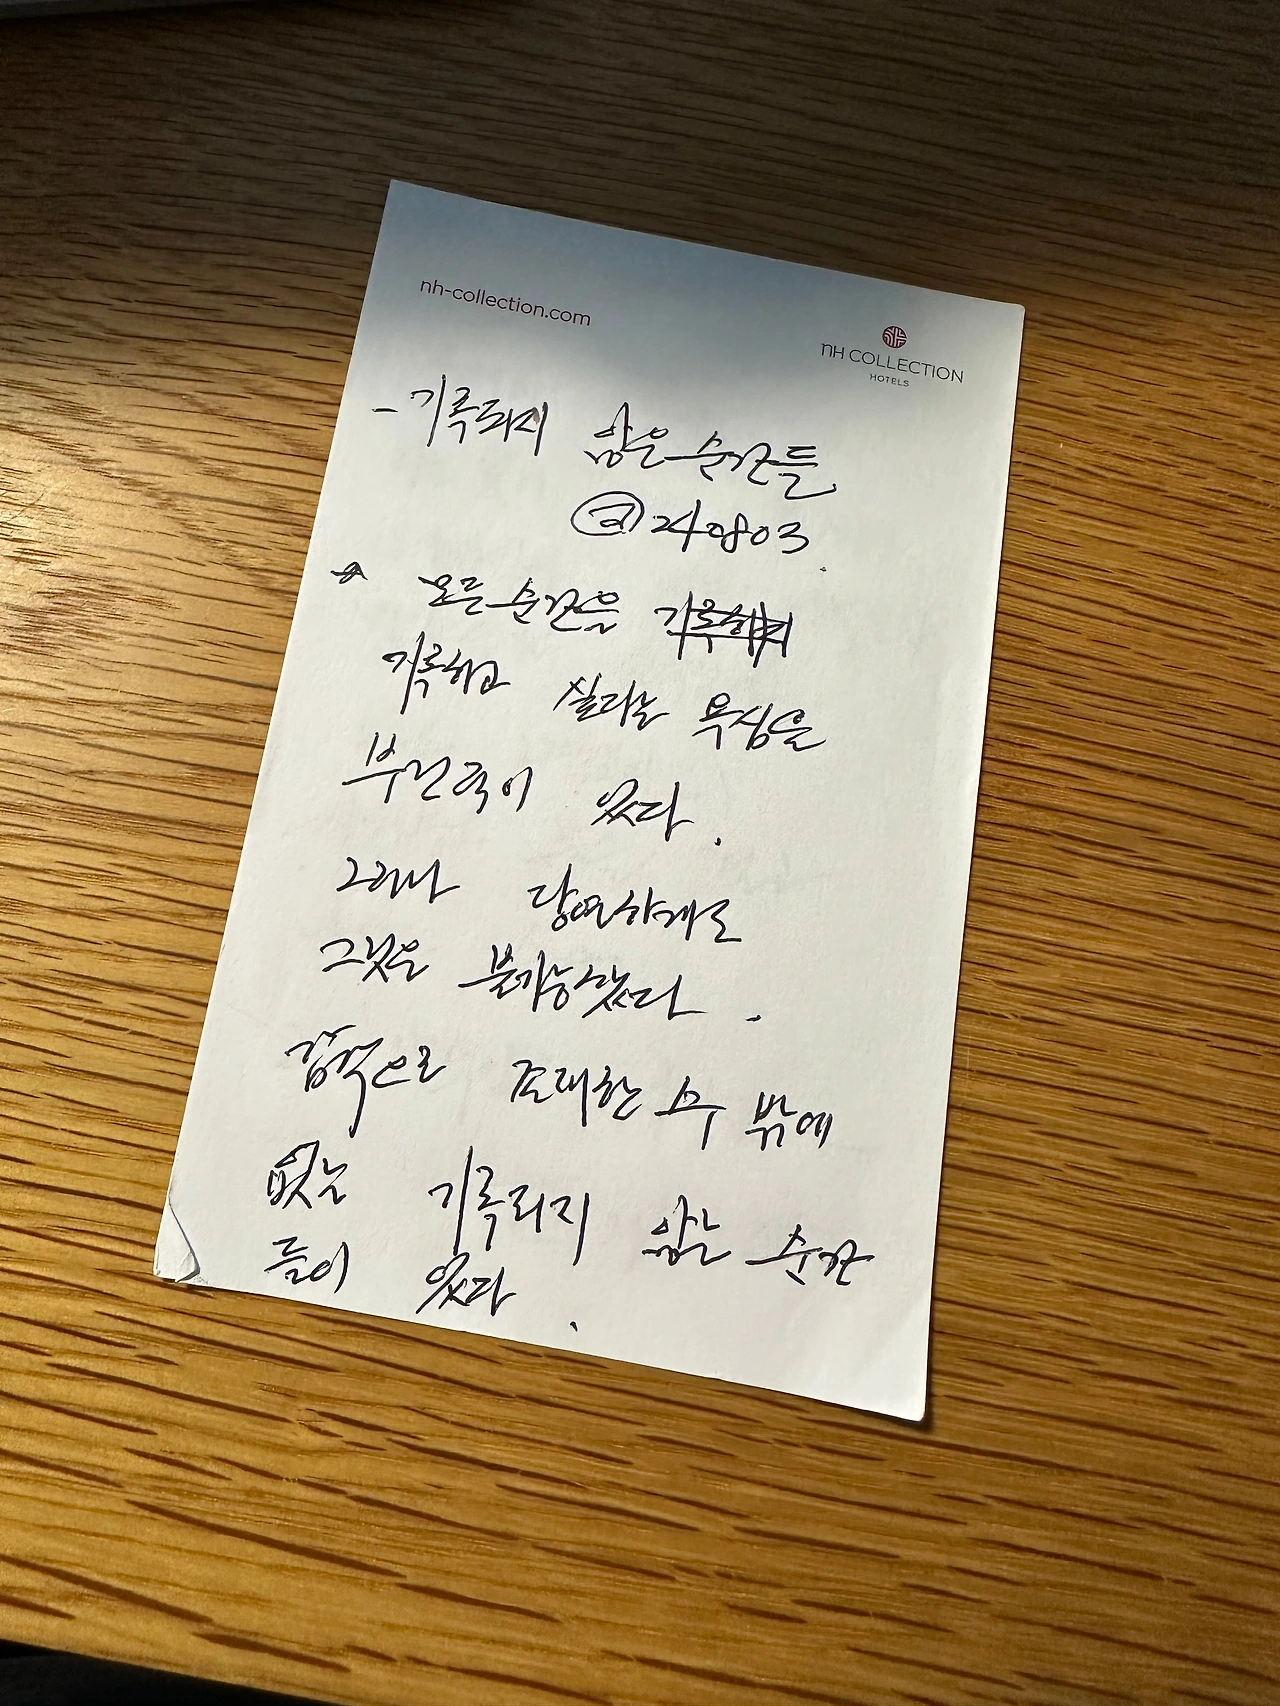 nh-collection.com
nH COLLECTION
HOTELS
- 기록되지 않은 순간들
@240803
* 모든 순간을 기록하지
기록하고 싶다는 욕심을
부린적이 있다.
그러나 당연하게도
그것은 불가능했다.
감각으로 존재할 수 밖에
없는 기록되지 않는 순간
들이 있다.